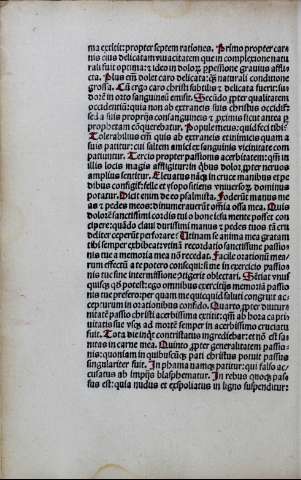 ma extitit: propter septem rationes. Primo propter car
nis eius delicatam viuacitatem que in complexione natu
rali fuit optima: ⁊ ideo in dolore ꝑpessione grauius afflic
cta. Plus em̄ dolet caro delicata: qͣꝫ naturali conditione
grossa. Cū ergo caro christi subtilis ⁊ delicata fuerit: su
dore in orto sanguineū emisit. Secūdo ꝓpter qualitatem
occidentiū: quia non ab extraneis suis christus occidit̉:
seᷣ a suis proprijs consanguineis ⁊ ꝓximis sicut antea ꝑ
prophetam cōquerebatur. Popule meus: quid feci tibi:
Tolerabilius em̄ quis ab extraneis et inimicis quam a
suis patitur: cui saltem amici ex sanguinis vicinitate com
patiuntur. Tercio propter passionis acerbitatem: qm̄ in
illis locis magis affligitur in qͥbus dolor ꝓpter neruos
amplius sentitur. Eleuatus naqꝫ in cruce manibus et pe
dibus configit̉: velle et ypopositiens vniuersoꝝ dominus
portatur. Dicit enim de eo psalmista. Foderūt manus me
as ⁊ pedes meos: dinumerauerūt oīa ossa mea. Quis
dolorē sanctissimi cordis tui o bone iesu mente posset con
cipere: quādo claui durissimi manus ⁊ pedes tuos tā cru
deliter ceperūt perforare: Utinam se anima mea gratam
tibi semper exhibeat: vt in ea recordatio sanctissime passio
nis tue a memoria mea nō recedat. Facile orationū mea
rum effectū a te potero consequi: si me in exercicio passio
nis tue sine intermissione ꝯtigerit oblectari. Sētiat viuſ
quisqꝫ qd̄ potest: ego omnibus exercitijs memoriā passio
nis tue prefero: per quam me quicquid saluti congruit ac
cepturum in orationibus confido. Quarto ꝓpter diutur
nitatē passio christi acerbissima extitit: qm̄ ab hora capti
uitatis sue vsqꝫ ad mortē semper in acerbissimo cruciatu
fuit. Tota die inqͥt contristatus ingrediebar: et nō est sa
nitas in carne mea. Quinto ꝓpter generalitatem passio
nis: quoniam in quibuscūqꝫ pati christus potuit passus
singulariter fuit. In phama namqꝫ patitur: qui falso ac
cusatus ab impijs blasphematur. In rebus quoqꝫ pas
sus est: quia nudus et exspoliatus in ligno suspenditur: